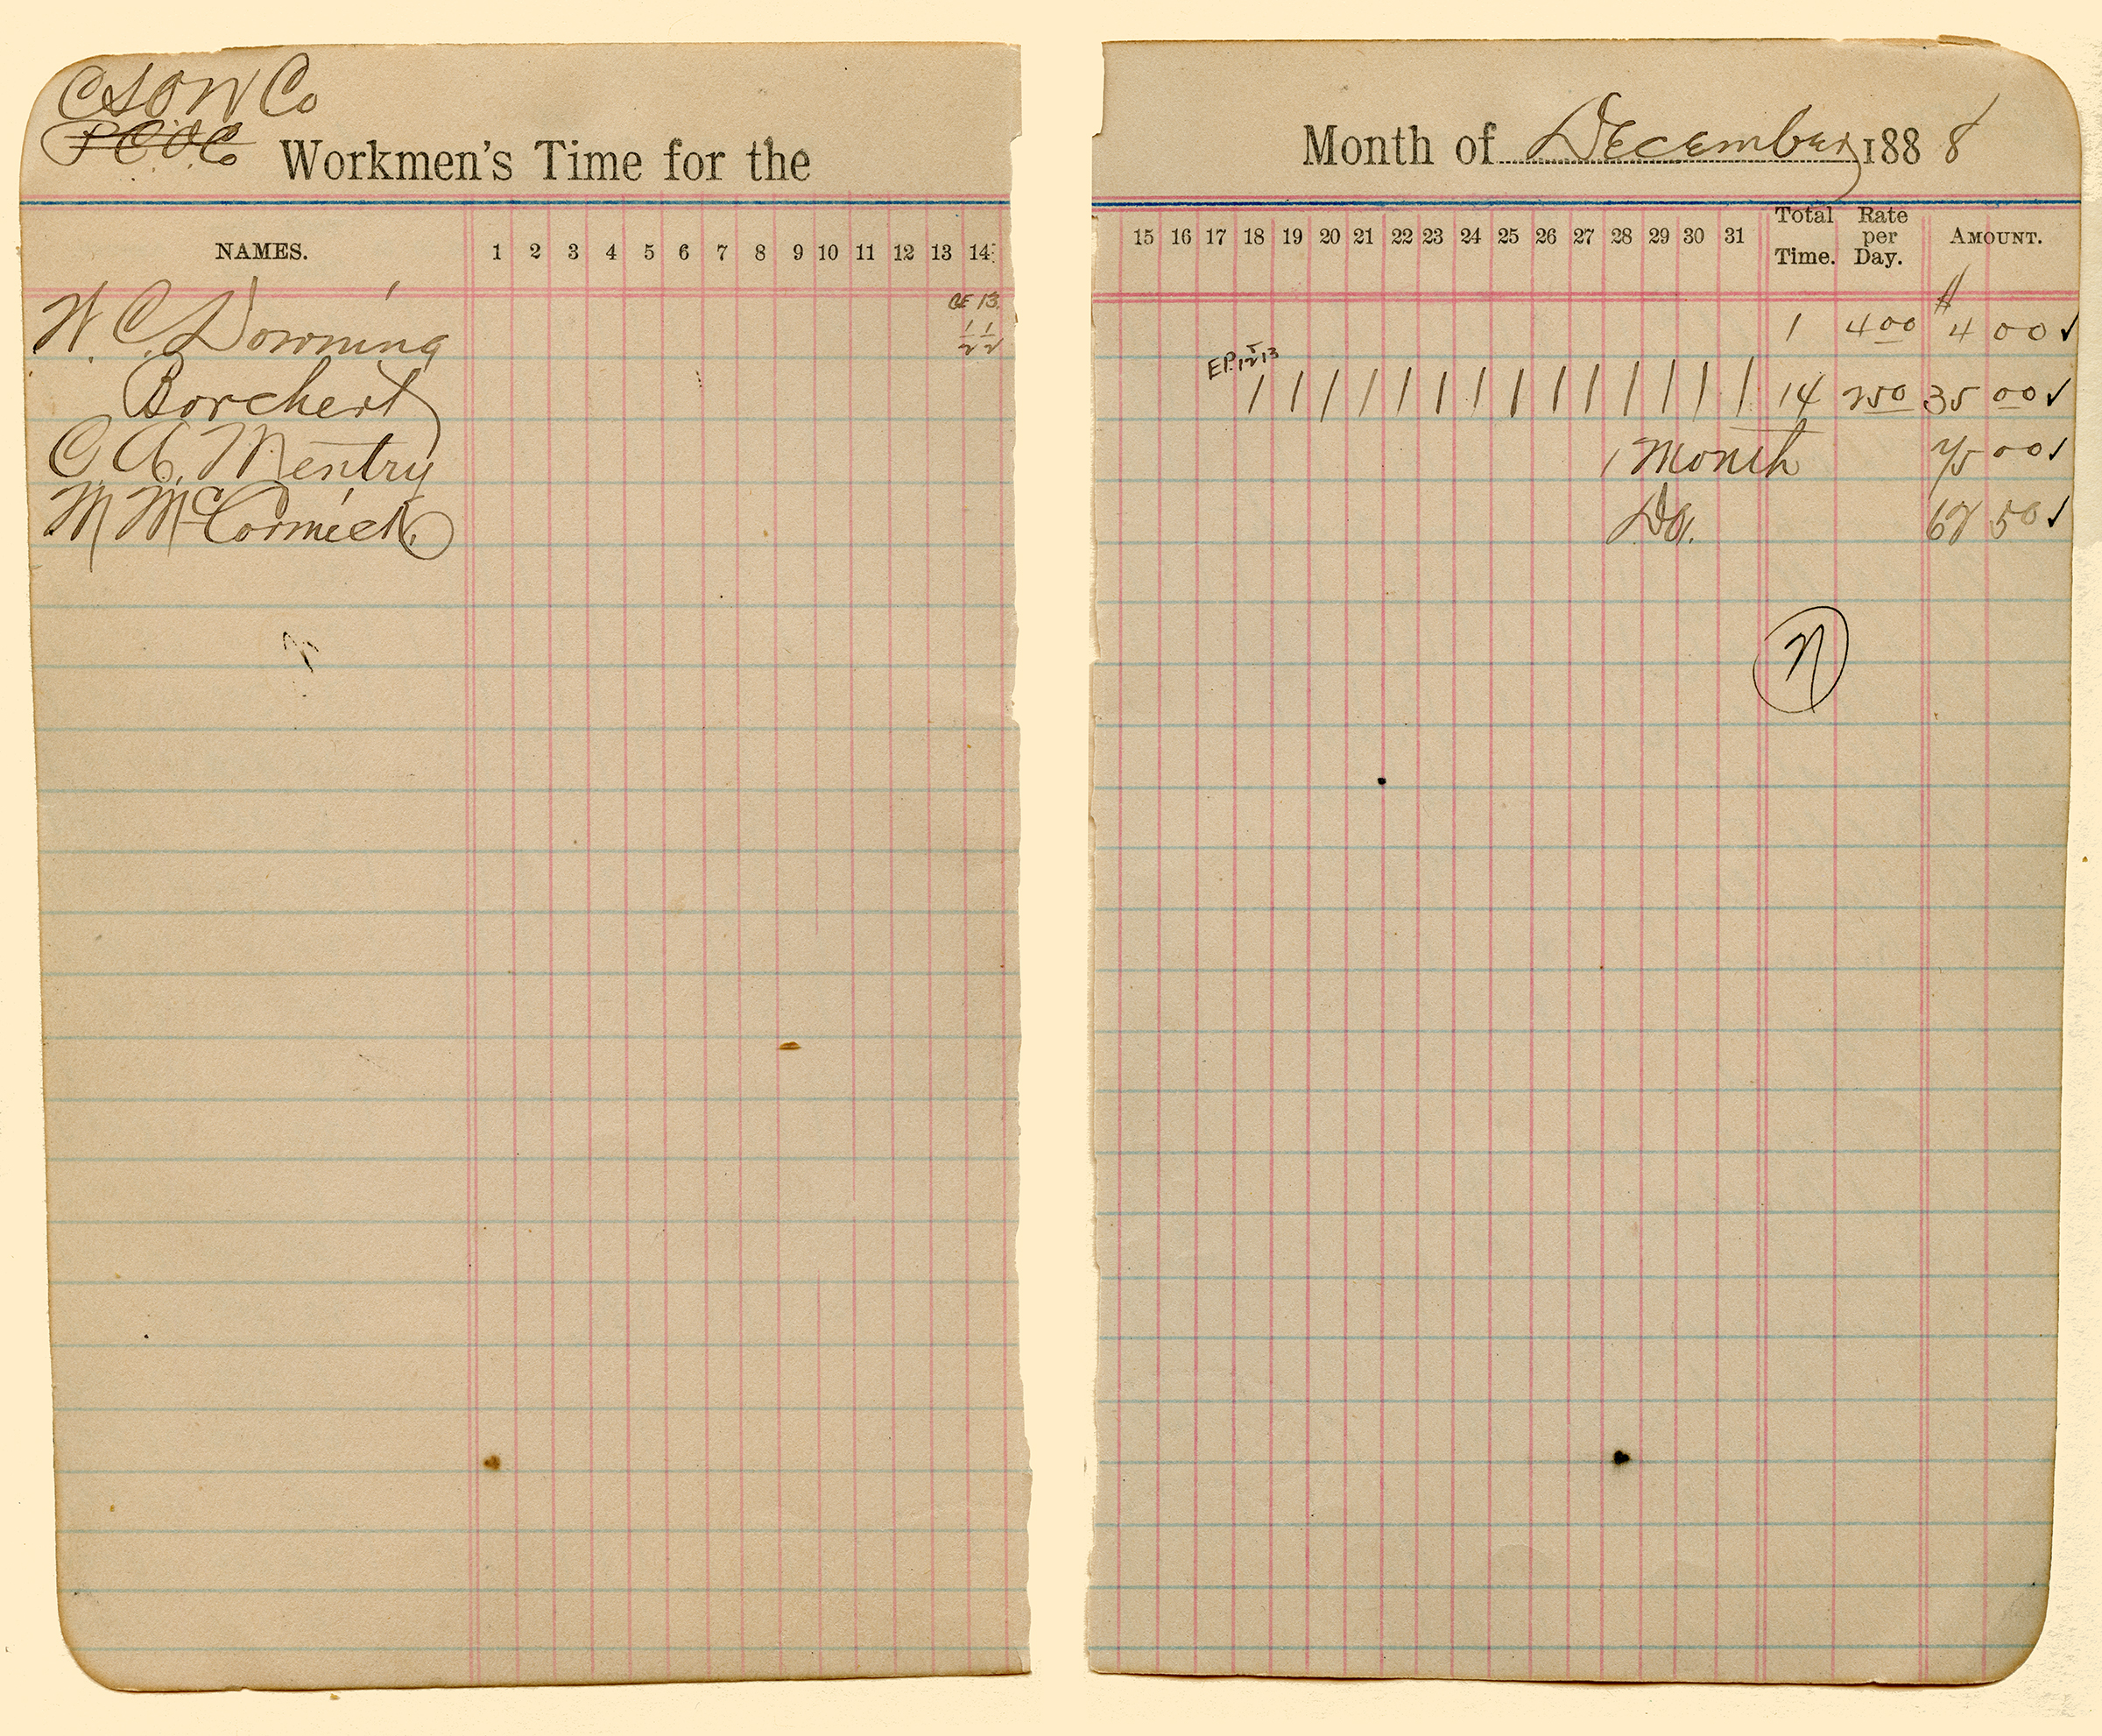 CSOW Co
PCOCo
Workmen's Time for the Month of December 1888
NAMES. 1 2 3 4 5 6 7 8 9 10 11 12 13 14 15 16 17 18 19 20 21 22 23 24 25 26 27 28 29 30 31 Total Time. Rate per Day. AMOUNT.
W. C. Downing 13 1/2 1/2 1 4 00 $4 00 ✓
Borchert EP. 12 13 / / / / / / / / / / / / / / 14 2 50 35 00 ✓
C. A. Mentry 1 Month 75 00 ✓
M McCormick Do. 67 50 ✓